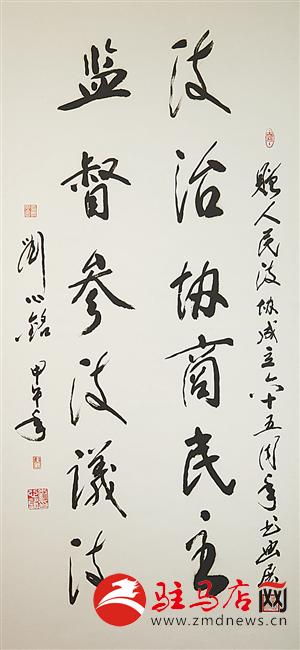 人民政协成立六十五周年书画展
政治协商民主
监督参政議政
劉心銘 甲午年
驻马店网
www.zmdnews.cn